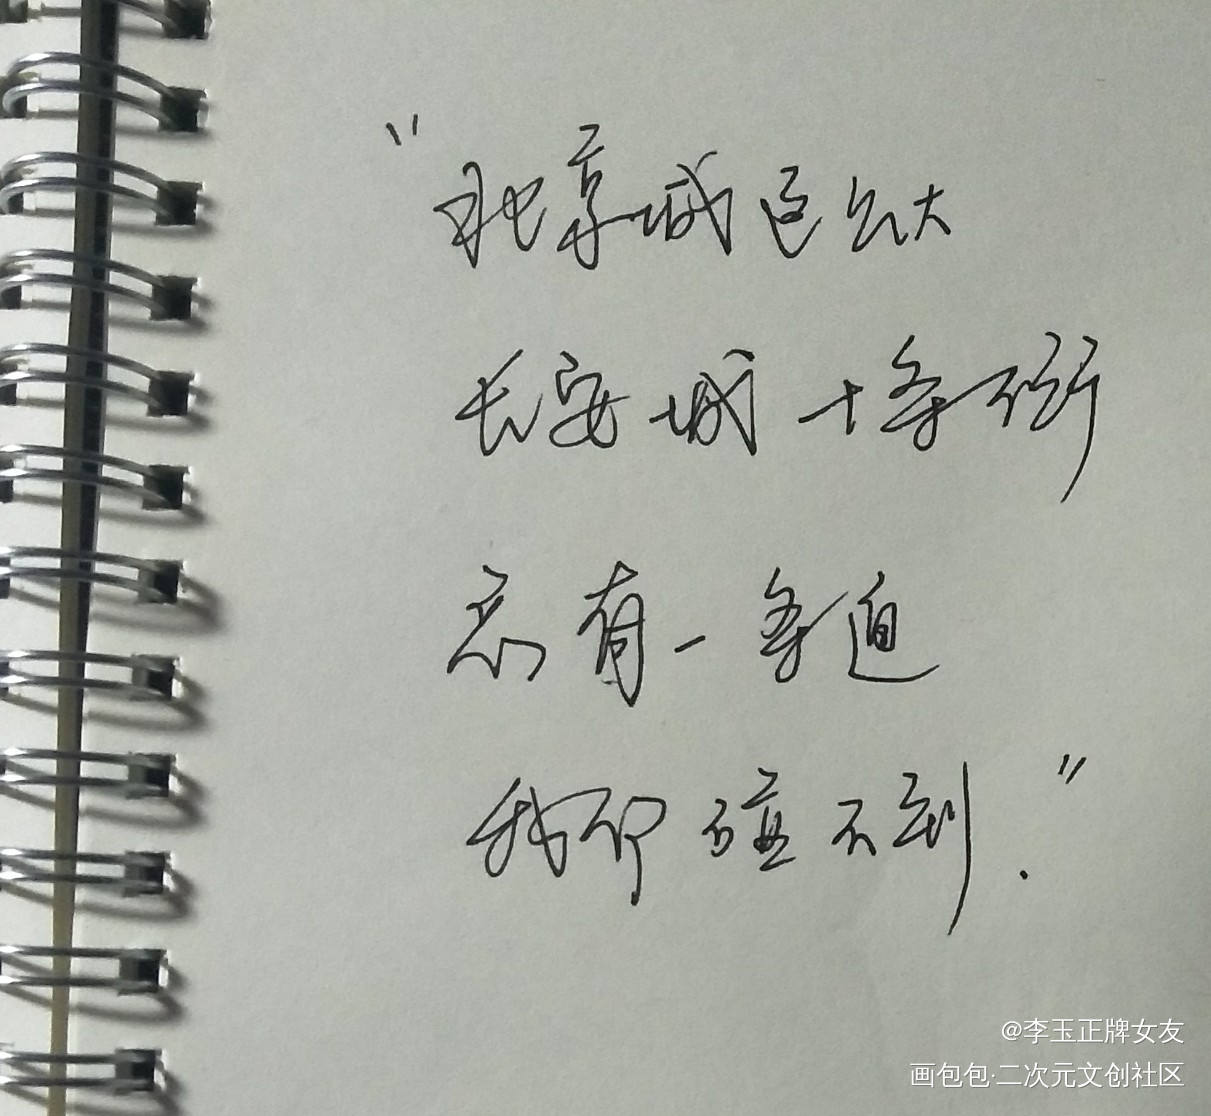 “北京城这么大
长安城十条街
总有一条道
我却碰不到.”
@李玉正牌女友
画包包·二次元文创社区